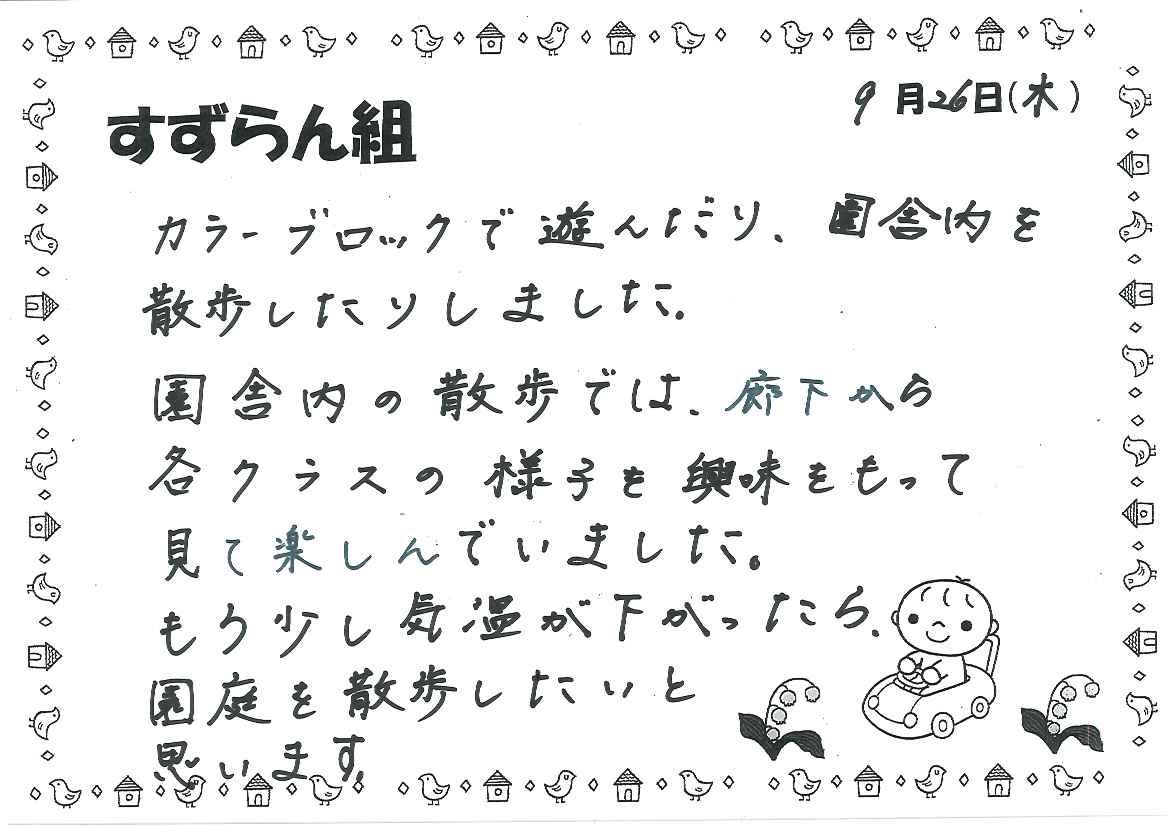 9月26日(木)
すずらん組
カラーブロックで遊んだり、園舎内を
散歩したりしました。
園舎内の散歩では、廊下から
各クラスの様子を興味をもって
見て楽しんでいました。
もう少し気温が下がったら、
園庭を散歩したいと
思います。